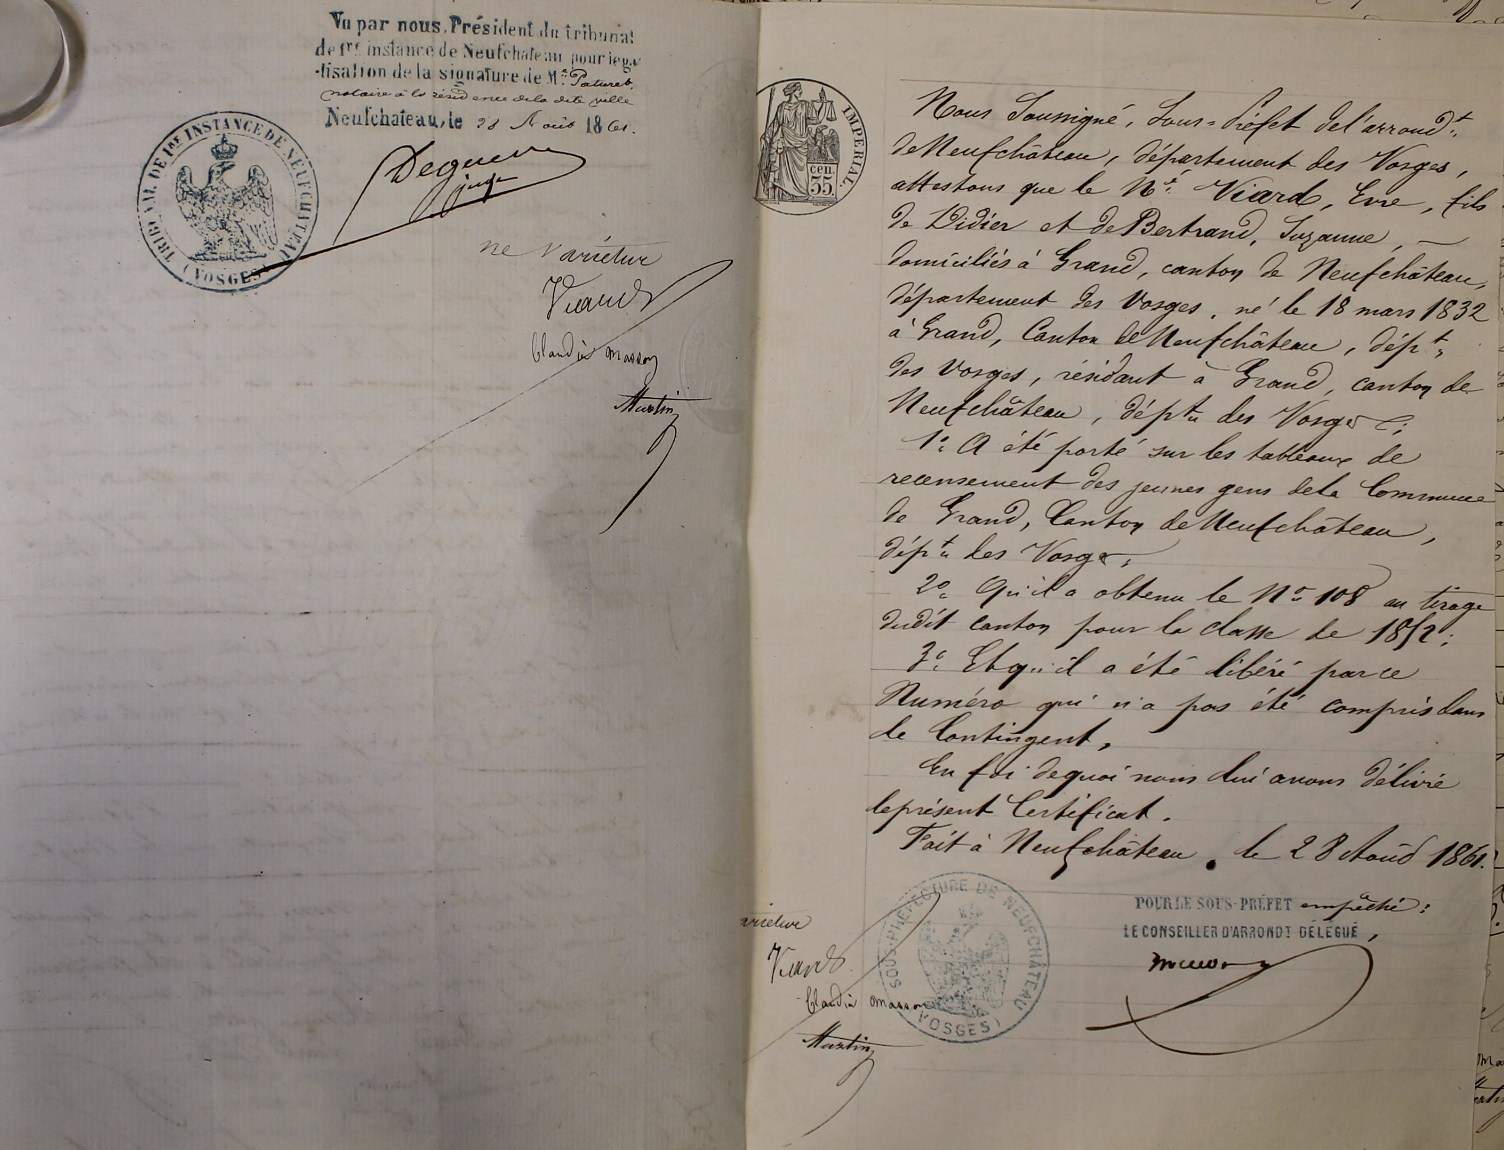 Vu par nous, Président du tribunal
de 1re instance de Neufchateau pour léga
-lisation de la signature de Me Paturet,
notaire à la résidence de la dite ville
Neufchateau, le 28 Août 1861.
TRIBUNAL DE 1re INSTANCE DE NEUFCHATEAU
(VOSGES)
juge
ne varietur
Viard
Claudin Masson
Martin
IMPERIAL
35 cen.
Nous Soussigné, Sous-Préfet de l'arrondt
de Neufchâteau, département des Vosges,
attestons que le Né Viard, Evre, fils
de Didier et de Bertrand, Suzanne,
domiciliés à Grand, canton de Neufchâteau,
département des Vosges, né le 18 mars 1832
à Grand, Canton de Neufchâteau, dépt
des Vosges, résidant à Grand, canton de
Neufchâteau, dépt des Vosges;
1o A été porté sur les tableaux de
recensement des jeunes gens de la Commune
de Grand, Canton de Neufchâteau,
dépt des Vosges;
2o Qu'il a obtenu le No 108 au tirage
dudit canton pour la classe de 1852;
3o Et qu'il a été libéré par ce
Numéro qui n'a pas été compris dans
le Contingent,
En foi de quoi nous lui avons délivré
le présent Certificat.
Fait à Neufchâteau, le 28 Août 1861.
POUR LE SOUS-PRÉFET empêché:
LE CONSEILLER D'ARRONDT DÉLÉGUÉ,
SOUS-PRÉFECTURE DE NEUFCHÂTEAU
(VOSGES)
varietur
Viard
Claudin Masson
Martin